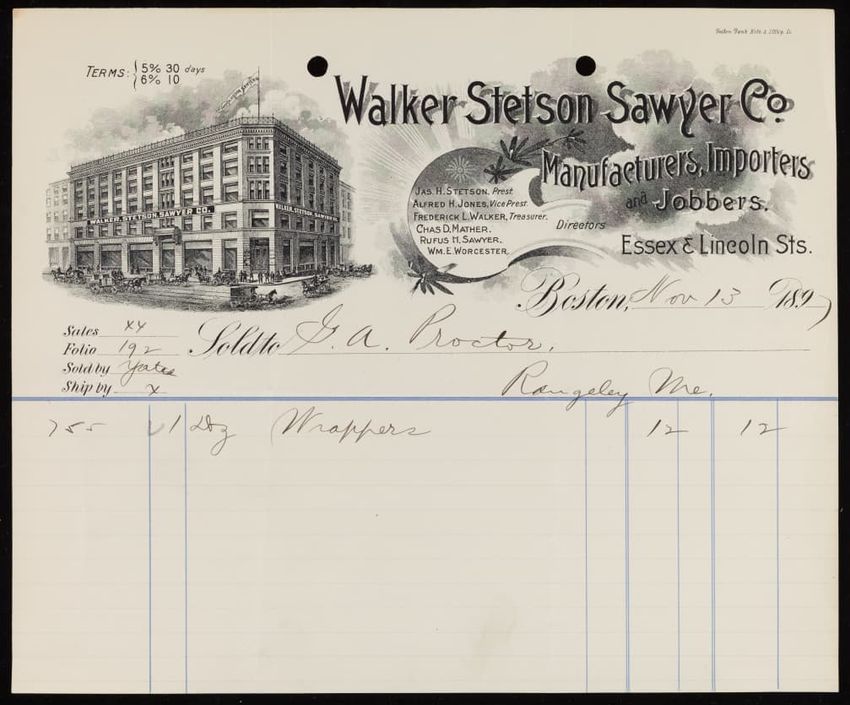 TERMS: 5% 30 days
6% 10
WALKER, STETSON, SAWYER CO.
WALKER, STETSON, SAWYER
Walker Stetson Sawyer Co.
Manufacturers, Importers
and Jobbers.
Jas. H. Stetson, Prest.
Alfred H. Jones, Vice Prest.
Frederick L. Walker, Treasurer.
Chas D. Mather.
Rufus H. Sawyer.
Wm. E. Worcester.
Directors
Essex & Lincoln Sts.
Boston, Nov 13 1897
Sales XX
Folio 192
Sold by Yates
Ship by X
Sold to G. A. Proctor,
Rangeley Me.
755 1 Dz Wrappers 12 12